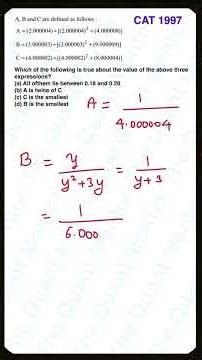 A, B and C are defined as follows :
CAT 1997
A = (2.000004) ÷ [(2.000004)² + (4.000008)]
B = (3.000003) ÷ [(3.000003)² + (9.000009)]
C = (4.000002) ÷ [(4.000002)² + (8.000004)]
Which of the following is true about the value of the above three
expressions?
(a) All ofthem lie between 0.18 and 0.20
(b) A is twice of C
(c) C is the smallest
(d) B is the smallest
A = 1
4.000004
B = y = 1
y²+3y y+3
= 1
6.000